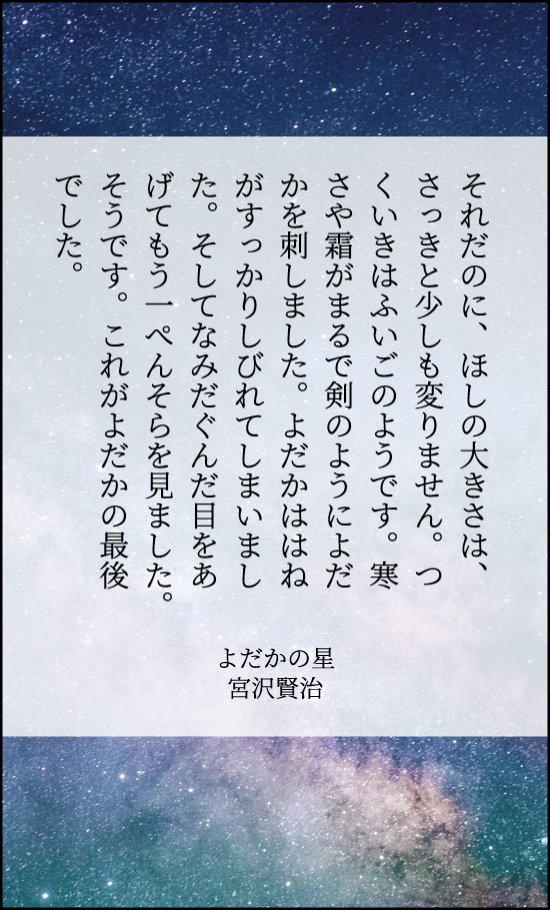 それだのに、ほしの大きさは、
さっきと少しも変りません。つ
くいきはふいごのようです。寒
さや霜がまるで剣のようによだ
かを刺しました。よだかははね
がすっかりしびれてしまいまし
た。そしてなみだぐんだ目をあ
げてもう一ぺんそらを見ました。
そうです。これがよだかの最後
でした。
よだかの星
宮沢賢治